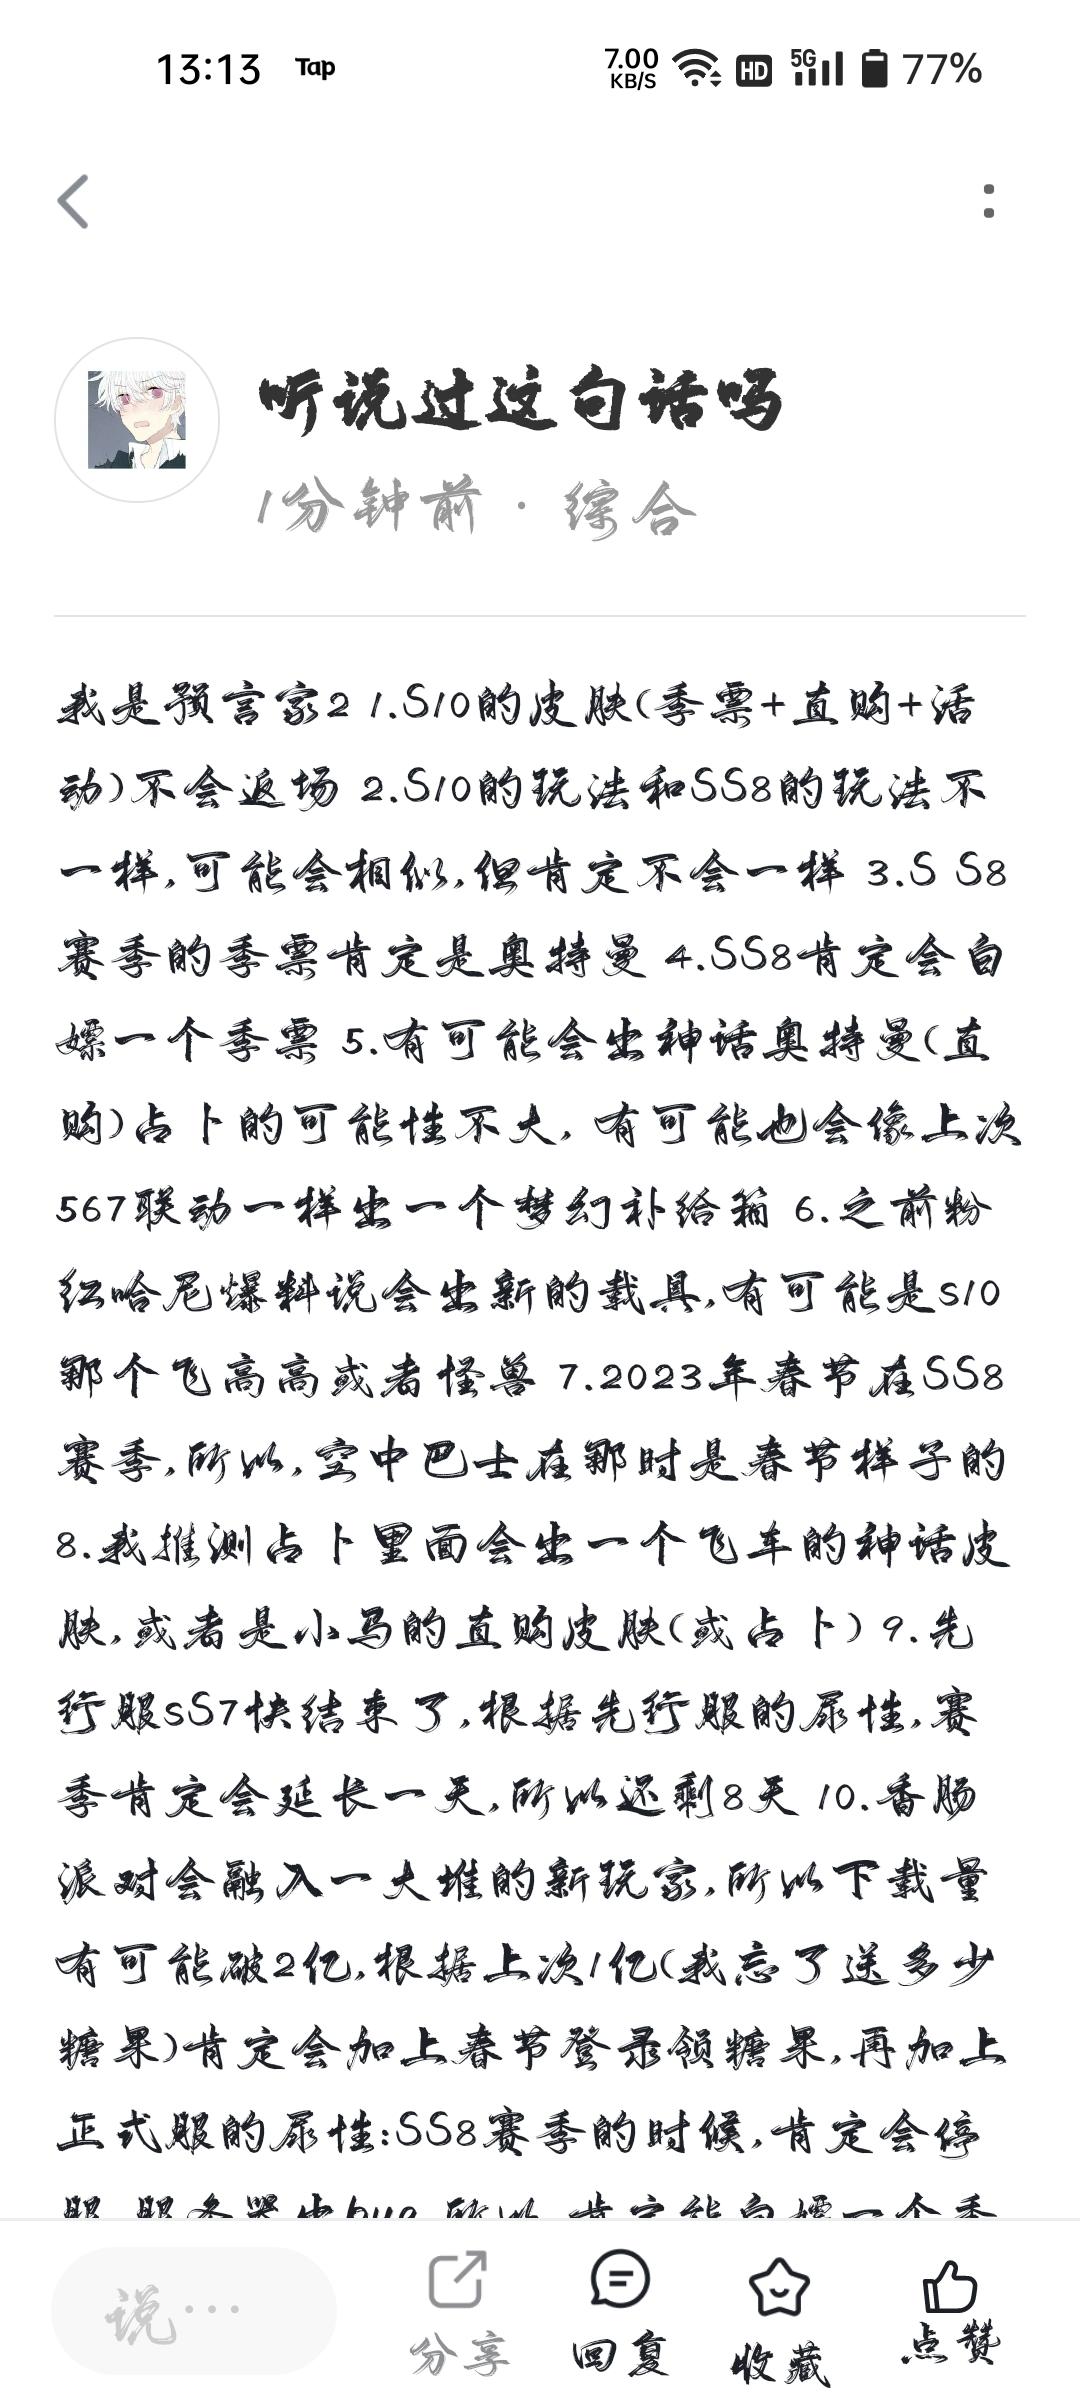 13:13 Tap 7.00 KB/S HD 5G 77%
听说过这句话吗
1分钟前 · 综合
我是预言家2 1.S10的皮肤(季票+直购+活
动)不会返场 2.S10的玩法和SS8的玩法不
一样,可能会相似,但肯定不会一样 3.S S8
赛季的季票肯定是奥特曼 4.SS8肯定会白
嫖一个季票 5.有可能会出神话奥特曼(直
购)占卜的可能性不大, 有可能也会像上次
567联动一样出一个梦幻补给箱 6.之前粉
红哈尼爆料说会出新的载具,有可能是s10
那个飞高高或者怪兽 7.2023年春节在SS8
赛季,所以,空中巴士在那时是春节样子的
8.我推测占卜里面会出一个飞车的神话皮
肤,或者是小马的直购皮肤(或占卜) 9.先
行服sS7快结束了,根据先行服的尿性,赛
季肯定会延长一天,所以还剩8天 10.香肠
派对会融入一大堆的新玩家,所以下载量
有可能破2亿,根据上次1亿(我忘了送多少
糖果)肯定会加上春节登录领糖果,再加上
正式服的尿性:SS8赛季的时候,肯定会停
服,服务器出bug,所以,肯定能白嫖一个季
说…
分享 回复 收藏 点赞